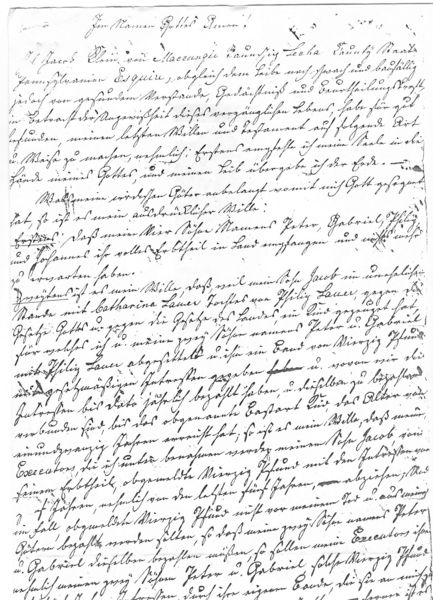 Im Namen Gottes Amen!
Ich Jacob Klein von Maccungie Taunschip Lecha Caunty Staate
Pennsylvanien Esquire, obgleich dem Leibe nach schwach und baufällig
jedoch von gesundem Verstande, Gedächtniß und Beurtheilungskraft,
in Betracht der Ungewißheit dieses vergänglichen Lebens, habe für gut
befunden meinen letzten Willen und Testament auf folgende Art
u. Weise zu machen, nehmlich: Erstens empfehle ich meine Seele in die
Hände meines Gottes und meinen Leib übergebe ich der Erde.
Was meine irdischen Güter anbelangt womit mich Gott gesegnet
hat, so ist es mein ausdrücklicher Wille:
Erstens, daß meine Vier Söhne Namens Peter, Gabriel, Philip
und Johannes ihr volles Erbtheil in Land empfangen und nichts mehr
zu erwarten haben.
Zweitens ist es mein Wille, daß weil mein Sohn Jacob im unehelichen
Stande mit Catharina Lauer Tochter von Philip Lauer, gegen die
Gesetze Gottes u. gegen die Gesetze des Landes ein Kind gezeugt hat,
für welches ich u. meine zwey Söhne namens Peter u. Gabriel
mit Philip Lauer abgesettelt u. ihm ein Band von Vierzig Pfund
mit gesetzmäßigen Interessen gegeben u. wovon wir die
Interessen bis Dato jährlich bezahlt haben, u. dieselben zu bezahlen
verbunden sind, bis das obgenannte Bastert Kind das Alter von
einundzwanzig Jahren erreicht hat, so ist es mein Wille, daß meine
Executors, die ich unten benennen werde, meinem Sohn Jacob von
seinem Erbtheil, obgemeldte Vierzig Pfund mit den Interessen von
Jahren, nehmlich von den letzten fünf Jahren, abziehen,
im Fall obgemeldte Vierzig Pfund nicht vor meinem Tod u. aus meinen
Gütern bezahlt werden sollten, so daß meine zwey Söhne namens Peter
u. Gabriel dieselben bezahlen müßten, so sollen meine Executors ihnen
nehmlich meinen zwey Söhnen Peter u. Gabriel solche Vierzig Pfund
Interessen durch ihr eigenen Bande, die sie an mich